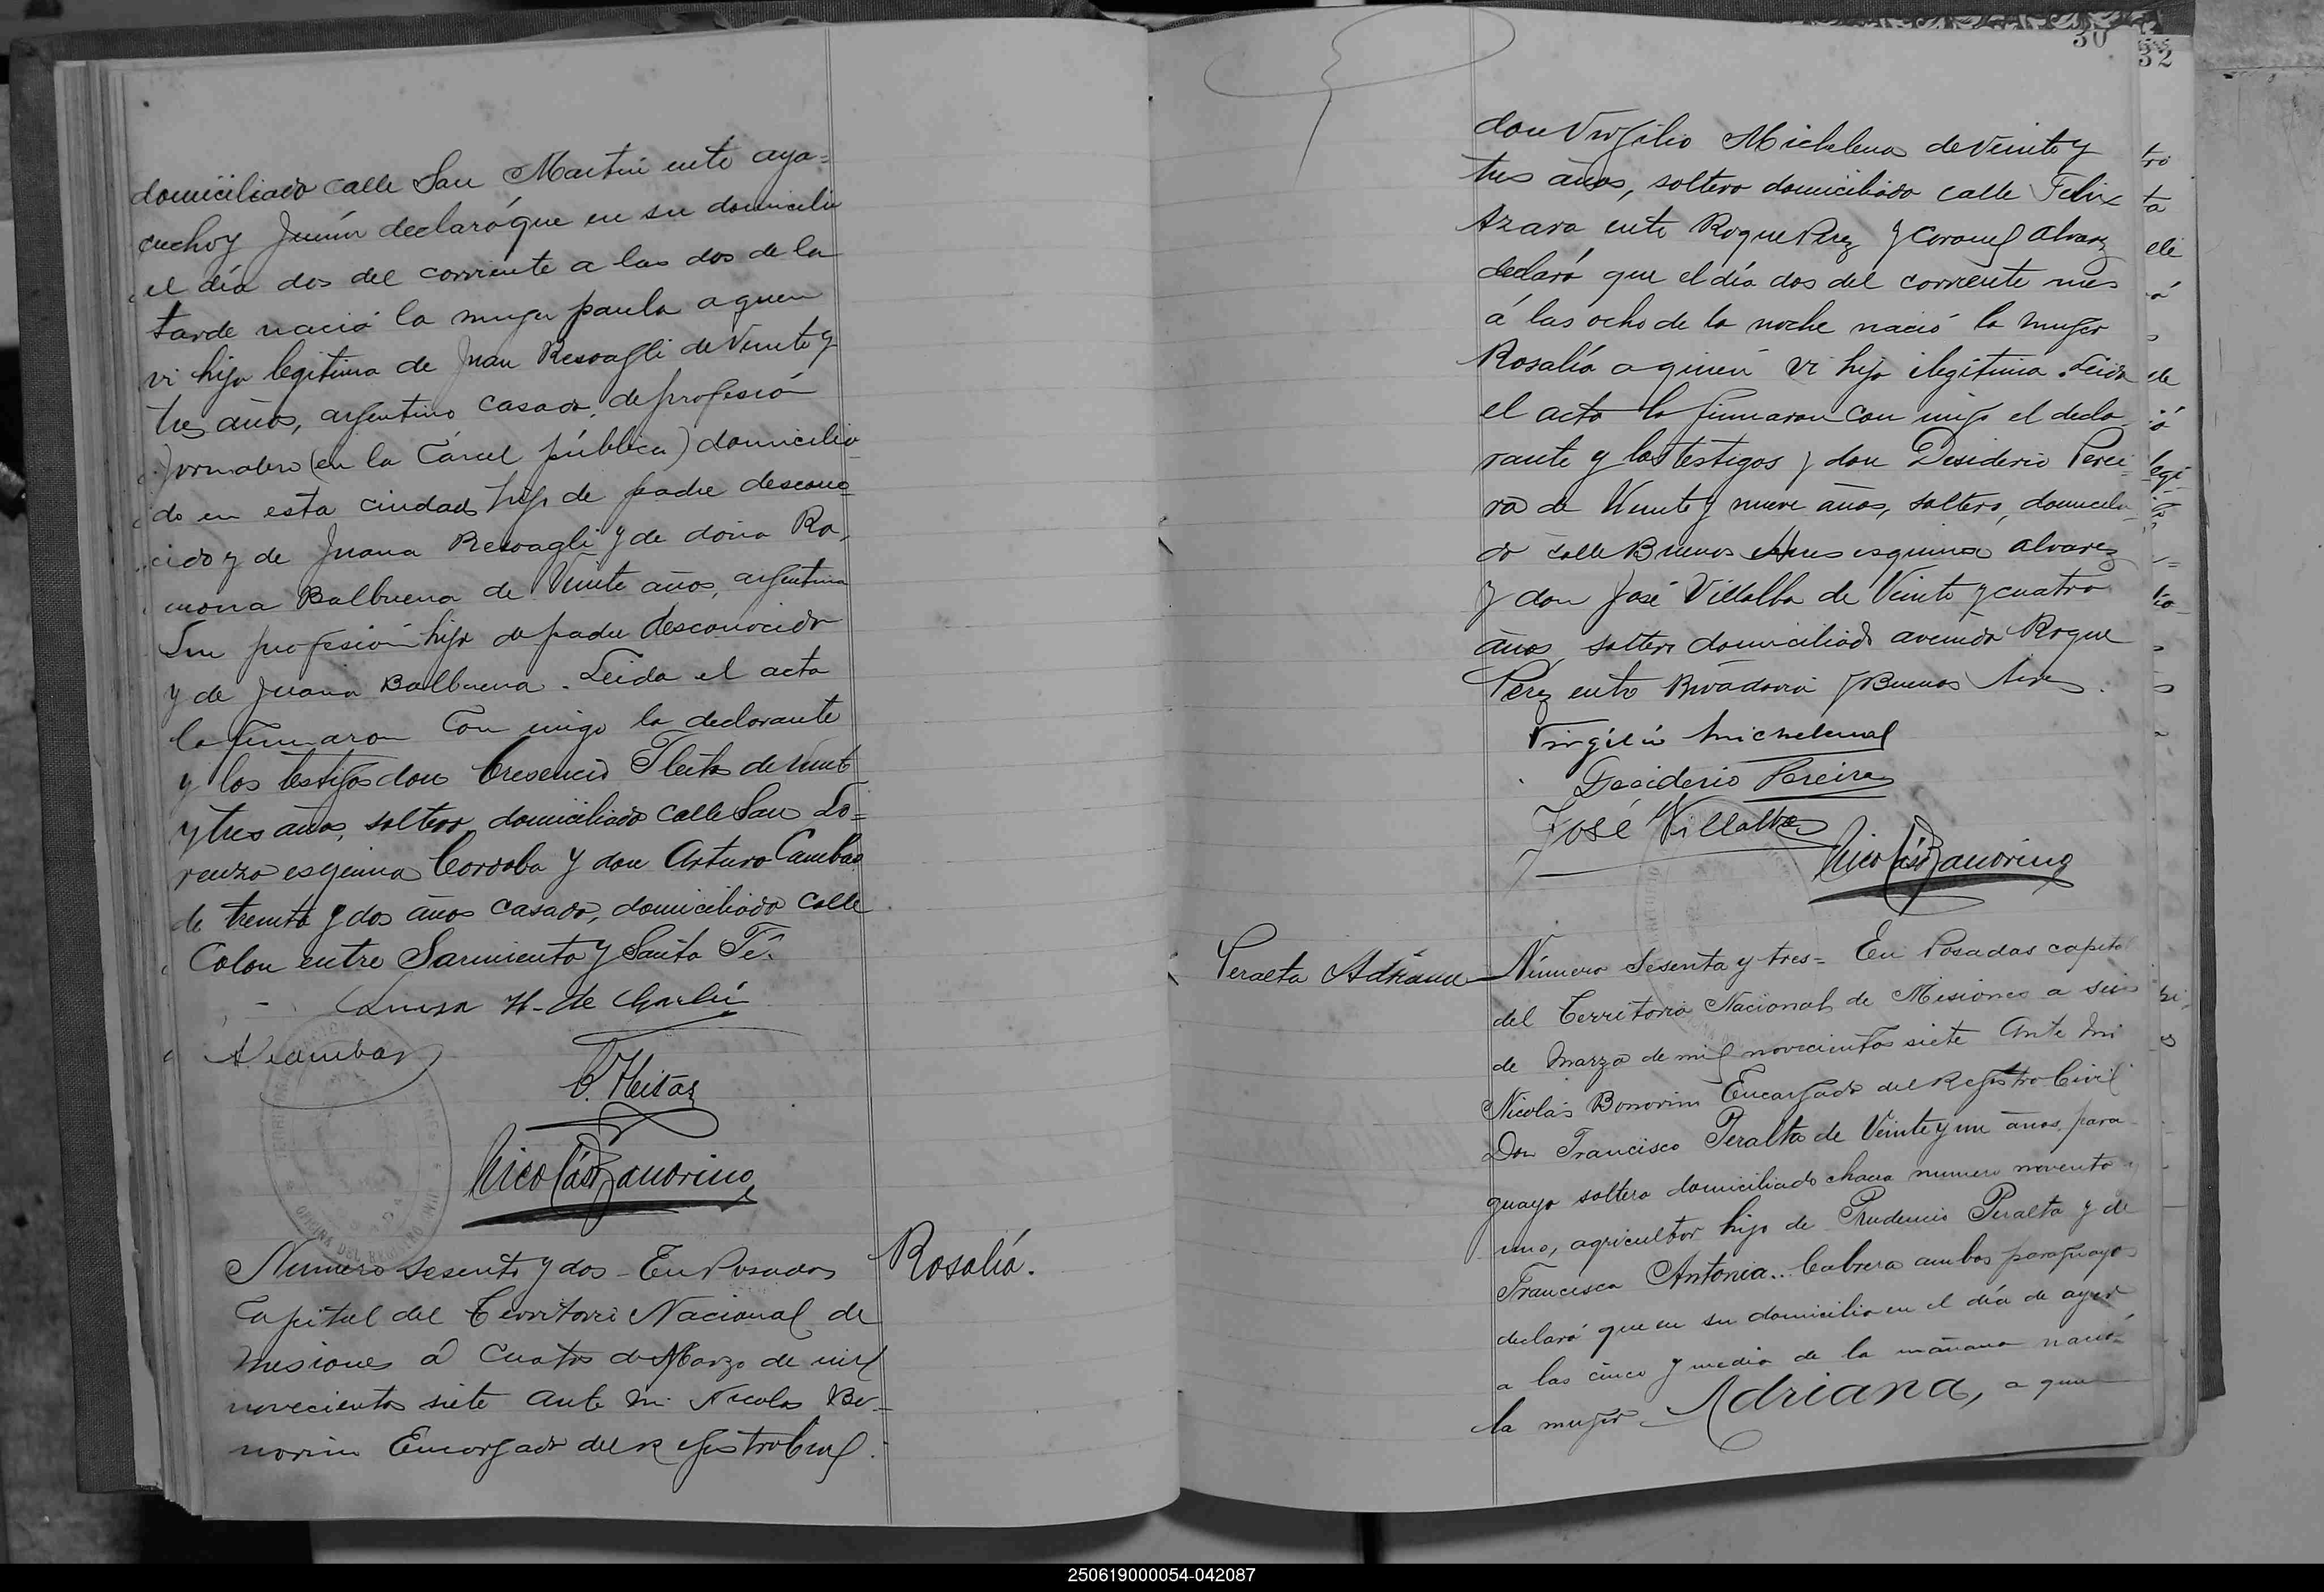 domiciliado calle San Martin entre aya=
cucho y Junín declaró que en su domicilio
el día dos del corriente a las dos de la
tarde nació la muger paula a quien
vi hija legitima de Juan Resoagli de Veinte y
tres años, argentino casado, de profesión
jornalero (en la Cárcel pública) domicilia
do en esta ciudad hijo de padre descono=
cido y de Juana Resoagli y de doña Ra,
mona Balbuena de Veinte años, argentina
Sin profesión hija de padre desconocido
y de Juana Balbuena. Leida el acta
la firmaron con migo la declarante
y los testigos don Cresencio Fleitas de veint
y tres años, soltero domiciliado calle San Lo=
renzo esquina Cordoba y don Arturo Cambas
de treinta y dos años casado, domiciliado calle
Colon entre Sarmiento y Santa Fé.
Luisa H. de
A. Cambas
C. Fleitas
Nicolás Bonorino
OFICINA DEL REGISTRO CIVIL
Numero Sesenta y dos - En Posadas
Capital del Territorio Nacional de
Misiones á Cuatro de Marzo de mil
novecientos siete ante mi Nicolas Bo=
norino Encargado del Registro Civil
Rosalía.
30
32
don Virgilio Michelena de veinte y
tres años, soltero domiciliado calle Felix
Azara entre Roque Perez y Coronel Alvarez
declaró que el día dos del corriente mes
á las ocho de la noche nació la muger
Rosalía a quien vi hija ilegitima. Leida
el acta la firmaron con migo el decla
rante y los testigos y don Desiderio Perei-
ra de Veinte y nueve años, soltero, domicilia
do calle Buenos Aires esquina Alvarez
y don José Villalba de Veinte y cuatro
años soltero domiciliado avenida Roque
Perez entre Rivadavia y Buenos Aires.
Virgilio Michelena
Desiderio Pereira
José Villalba
Nicolás Bonorino
Peralta Adriana
Número Sesenta y tres= En Posadas capital
del Territorio Nacional de Misiones a seis
de Marzo de mil novecientos siete Ante Mi
Nicolás Bonorino Encargado del Registro Civil
Don Francisco Peralta de Veinte y un años, para
guayo soltero domiciliado chacra numero noventa
uno, agricultor hijo de Prudencio Peralta y de
Francisca Antonia.. Cabrera ambos paraguayos
declaró que en su domicilio en el día de ayer
a las cinco y media de la mañana nació
la muger Adriana, a quien
250619000054-042087